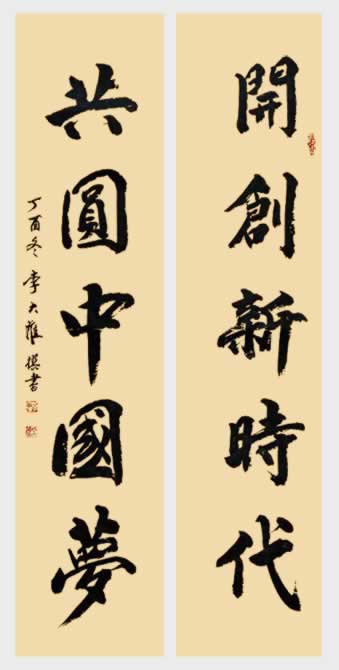 開創新時代
共圓中國夢
丁酉冬李大雁撰書